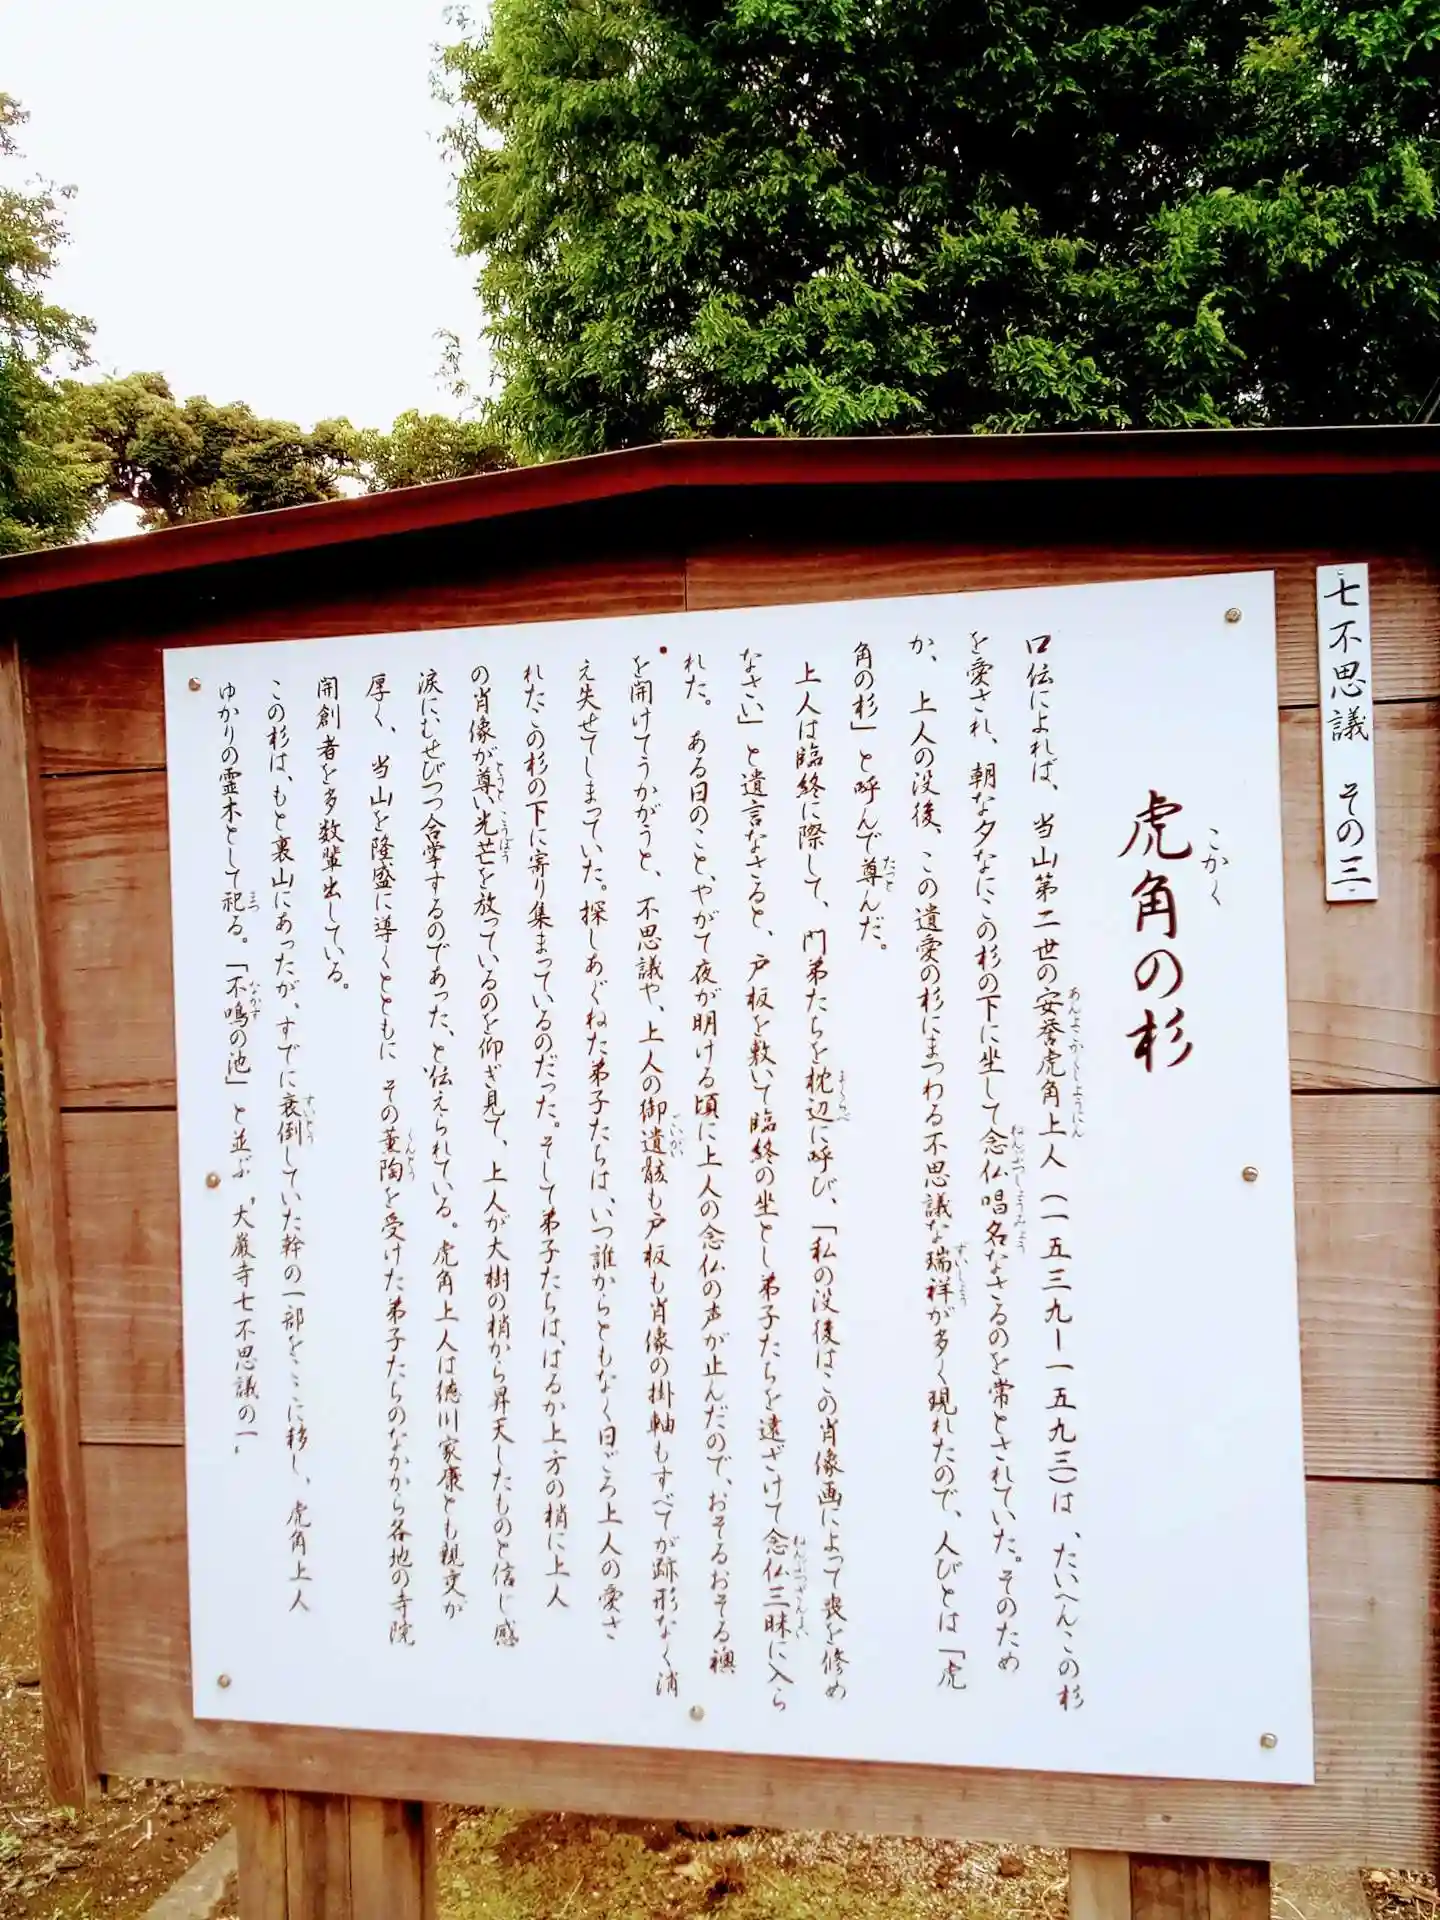 七不思議 その三
虎角の杉
こかく
口伝によれば、当山第二世の安誉虎角上人(一五三九ー一五九三)は、たいへんこの杉
あんよこかくしょうにん
を愛され、朝な夕なにこの杉の下に坐して念仏唱名なさるのを常とされていた。そのため
ねんぶつしょうみょう
か、上人の没後、この遺愛の杉にまつわる不思議な瑞祥が多く現れたので、人びとは「虎
ずいしょう
角の杉」と呼んで尊んだ。
たっと
上人は臨終に際して、門弟たちを枕辺に呼び、「私の没後はこの肖像画によって喪を修め
まくらべ
なさい」と遺言なさると、戸板を敷いて臨終の坐とし弟子たちを遠ざけて念仏三昧に入ら
ねんぶつざんまい
れた。ある日のこと、やがて夜が明ける頃に上人の念仏の声が止んだので、おそるおそる襖
を開けてうかがうと、不思議や、上人の御遺骸も戸板も肖像の掛軸もすべてが跡形なく消
ごいがい
え失せてしまっていた。探しあぐねた弟子たちは、いつ誰からともなく日ごろ上人の愛さ
れたこの杉の下に寄り集まっているのだった。そして弟子たちは、はるか上方の梢に上人
の肖像が尊い光芒を放っているのを仰ぎ見て、上人が大樹の梢から昇天したものと信じ感
とうと こうぼう
涙にむせびつつ合掌するのであった、と伝えられている。虎角上人は徳川家康とも親交が
厚く、当山を隆盛に導くとともに その薫陶を受けた弟子たちのなかから各地の寺院
くんとう
開創者を多数輩出している。
この杉は、もと裏山にあったが、すでに衰倒していた幹の一部をここに移し、虎角上人
すいとう
ゆかりの霊木として祀る。「不鳴の池」と並ぶ、大巌寺七不思議の一。
まつ なかず